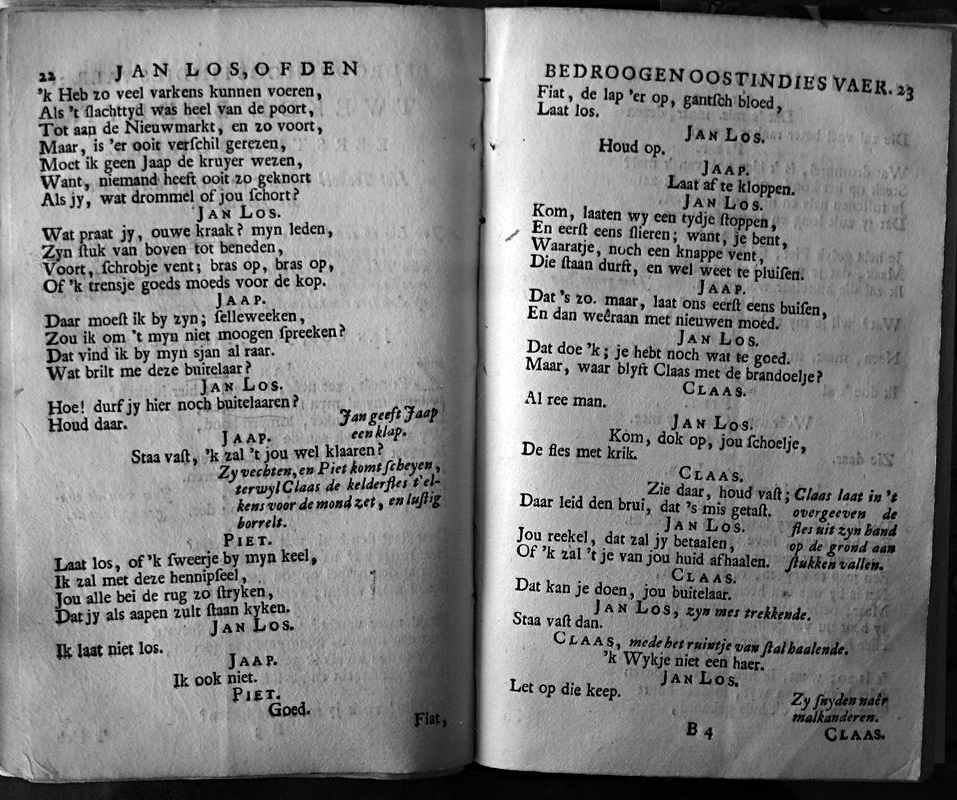 22 JAN LOS, OF DEN
'k Heb zo veel varkens kunnen voeren,
Als 't ſlachttyd was heel van de poort,
Tot aan de Nieuwmarkt, en zo voort,
Maar, is 'er ooit verſchil gerezen,
Moet ik geen Jaap de kruyer wezen,
Want, niemand heeft ooit zo geknort
Als jy, wat drommel of jou ſchort?
JAN LOS.
Wat praat jy, ouwe kraak? myn leden,
Zyn ſtuk van boven tot beneden,
Voort, ſchrobje vent; bras op, bras op,
Of 'k trensje goeds moeds voor de kop.
JAAP.
Daar moeſt ik by zyn; ſelleweeken,
Zou ik om 't myn niet moogen ſpreeken?
Dat vind ik by myn sjan al raar.
Wat brilt me deze buitelaar?
JAN LOS.
Hoe! durf jy hier noch buitelaaren?
Houd daar. Jan geeft Jaap
een klap.
JAAP.
Staa vaſt, 'k zal 't jou wel klaaren?
Zy vechten, en Piet komt ſcheyen,
terwyl Claas de kelderfles t'el-
kens voor de mond zet, en luſtig
borrelt.
PIET.
Laat los, of 'k ſweerje by myn keel,
Ik zal met deze hennipſeel,
Jou alle bei de rug zo ſtryken,
Dat jy als aapen zult ſtaan kyken.
JAN LOS.
Ik laat niet los.
JAAP.
Ik ook niet.
PIET.
Goed.
Fiat,
BEDROOGEN OOSTINDIES VAER. 23
Fiat, de lap 'er op, gantſch bloed,
Laat los.
JAN LOS.
Houd op.
JAAP.
Laat af te kloppen.
JAN LOS.
Kom, laaten wy een tydje ſtoppen,
En eerſt eens ſlieren; want, je bent,
Waaratje, noch een knappe vent,
Die ſtaan durft, en wel weet te pluiſen.
JAAP.
Dat 's zo. maar, laat ons eerſt eens buiſen,
En dan weêraan met nieuwen moed.
JAN LOS.
Dat doe 'k; je hebt noch wat te goed.
Maar, waar blyft Claas met de brandoelje?
CLAAS.
Al ree man.
JAN LOS.
Kom, dok op, jou ſchoelje,
De fles met krik.
CLAAS.
Zie daar, houd vaſt; Claas laat in 't
Daar leid den brui, dat 's mis getaſt. overgeeven de
JAN LOS. fles uit zyn hand
Jou reekel, dat zal jy betaalen, op de grond aan
Of 'k zal 't je van jou huid afhaalen. ſtukken vallen.
CLAAS.
Dat kan je doen, jou buitelaar.
JAN LOS, zyn mes trekkende.
Staa vaſt dan.
CLAAS, mede het ruintje van ſtal haalende.
'k Wykje niet een haer.
JAN LOS.
Let op die keep. Zy ſnyden naêr
malkanderen.
B 4 CLAAS.